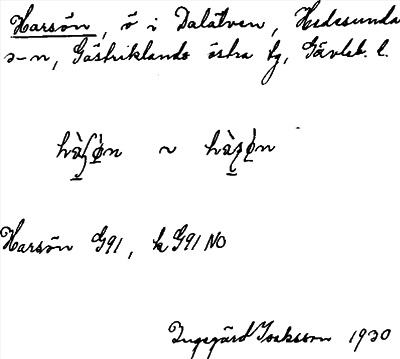 Harsön, ö i Dalälven, Hedesunda
s-n, Gästriklands östra tg, Gävleb. l.
hà̱ʃø̀n ~ hà̱ʂø̀n
Harsön G91, k G91 NO
Ingegärd Isaksson 1930